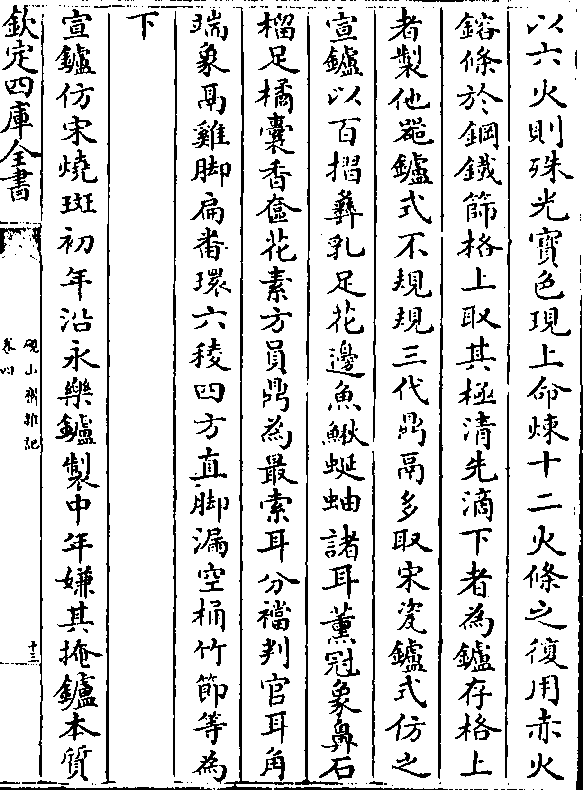 以六火則殊光寳色現上命煉十二火條之復用赤火
鎔條於鋼鐵篩格上取其極清先滴下者為鑪存格上
者製他器鑪式不規規三代鼎鬲多取宋瓷鑪式仿之
宣鑪以百摺彝乳足花邊魚鰍蜒蚰諸耳薰冠象鼻石
榴足橘囊香奩花素方員鼎為最索耳分襠判官耳角
端象鬲雞脚扁番環六稜四方直脚漏空桶竹節等為
下
宣鑪仿宋燒斑初年沿永樂鑪製中年嫌其掩鑪本質
欽定四庫全書
硯山齋雜記
卷四
十三